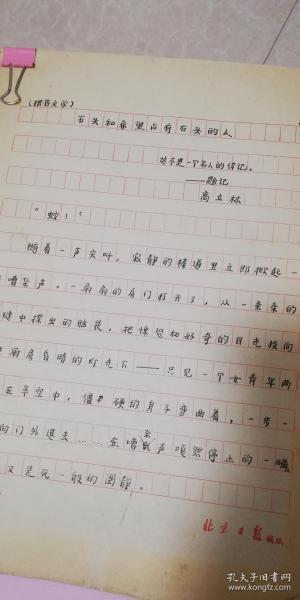 (报告文学)
石头和希望占有石头的人
这不是一个名人的传记。
——题记
高立林
“蛇!”
随着一声尖叫，寂静的楼道里立即掀起一
嘈杂声。一扇扇的房门打开了，从一条条的
缝中探出的脸装，把惶恐和好奇的目光投向
厨房昏暗的灯光下——只见一个女青年两
在半空中，僵硬的身子弯曲着，一步一
向门外退去……在嘈杂声嘎然停止的一瞬
又是死一般的阒静。
北京日报
孔夫子旧书网